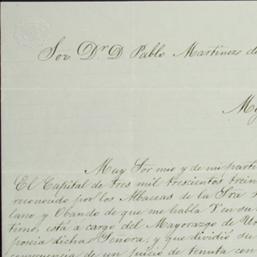 Sor Dr. D Pablo Martinez de
Muy Sor mio y de mi parti
El Capital de tres mil trescientos trein
reconocido por los Albaceas de la Sra.
lano y Obando de que me habla V en su
timo, está a cargo del Mayorazgo de
dicha Señora, y que dividió su
de un juicio de tenuta con